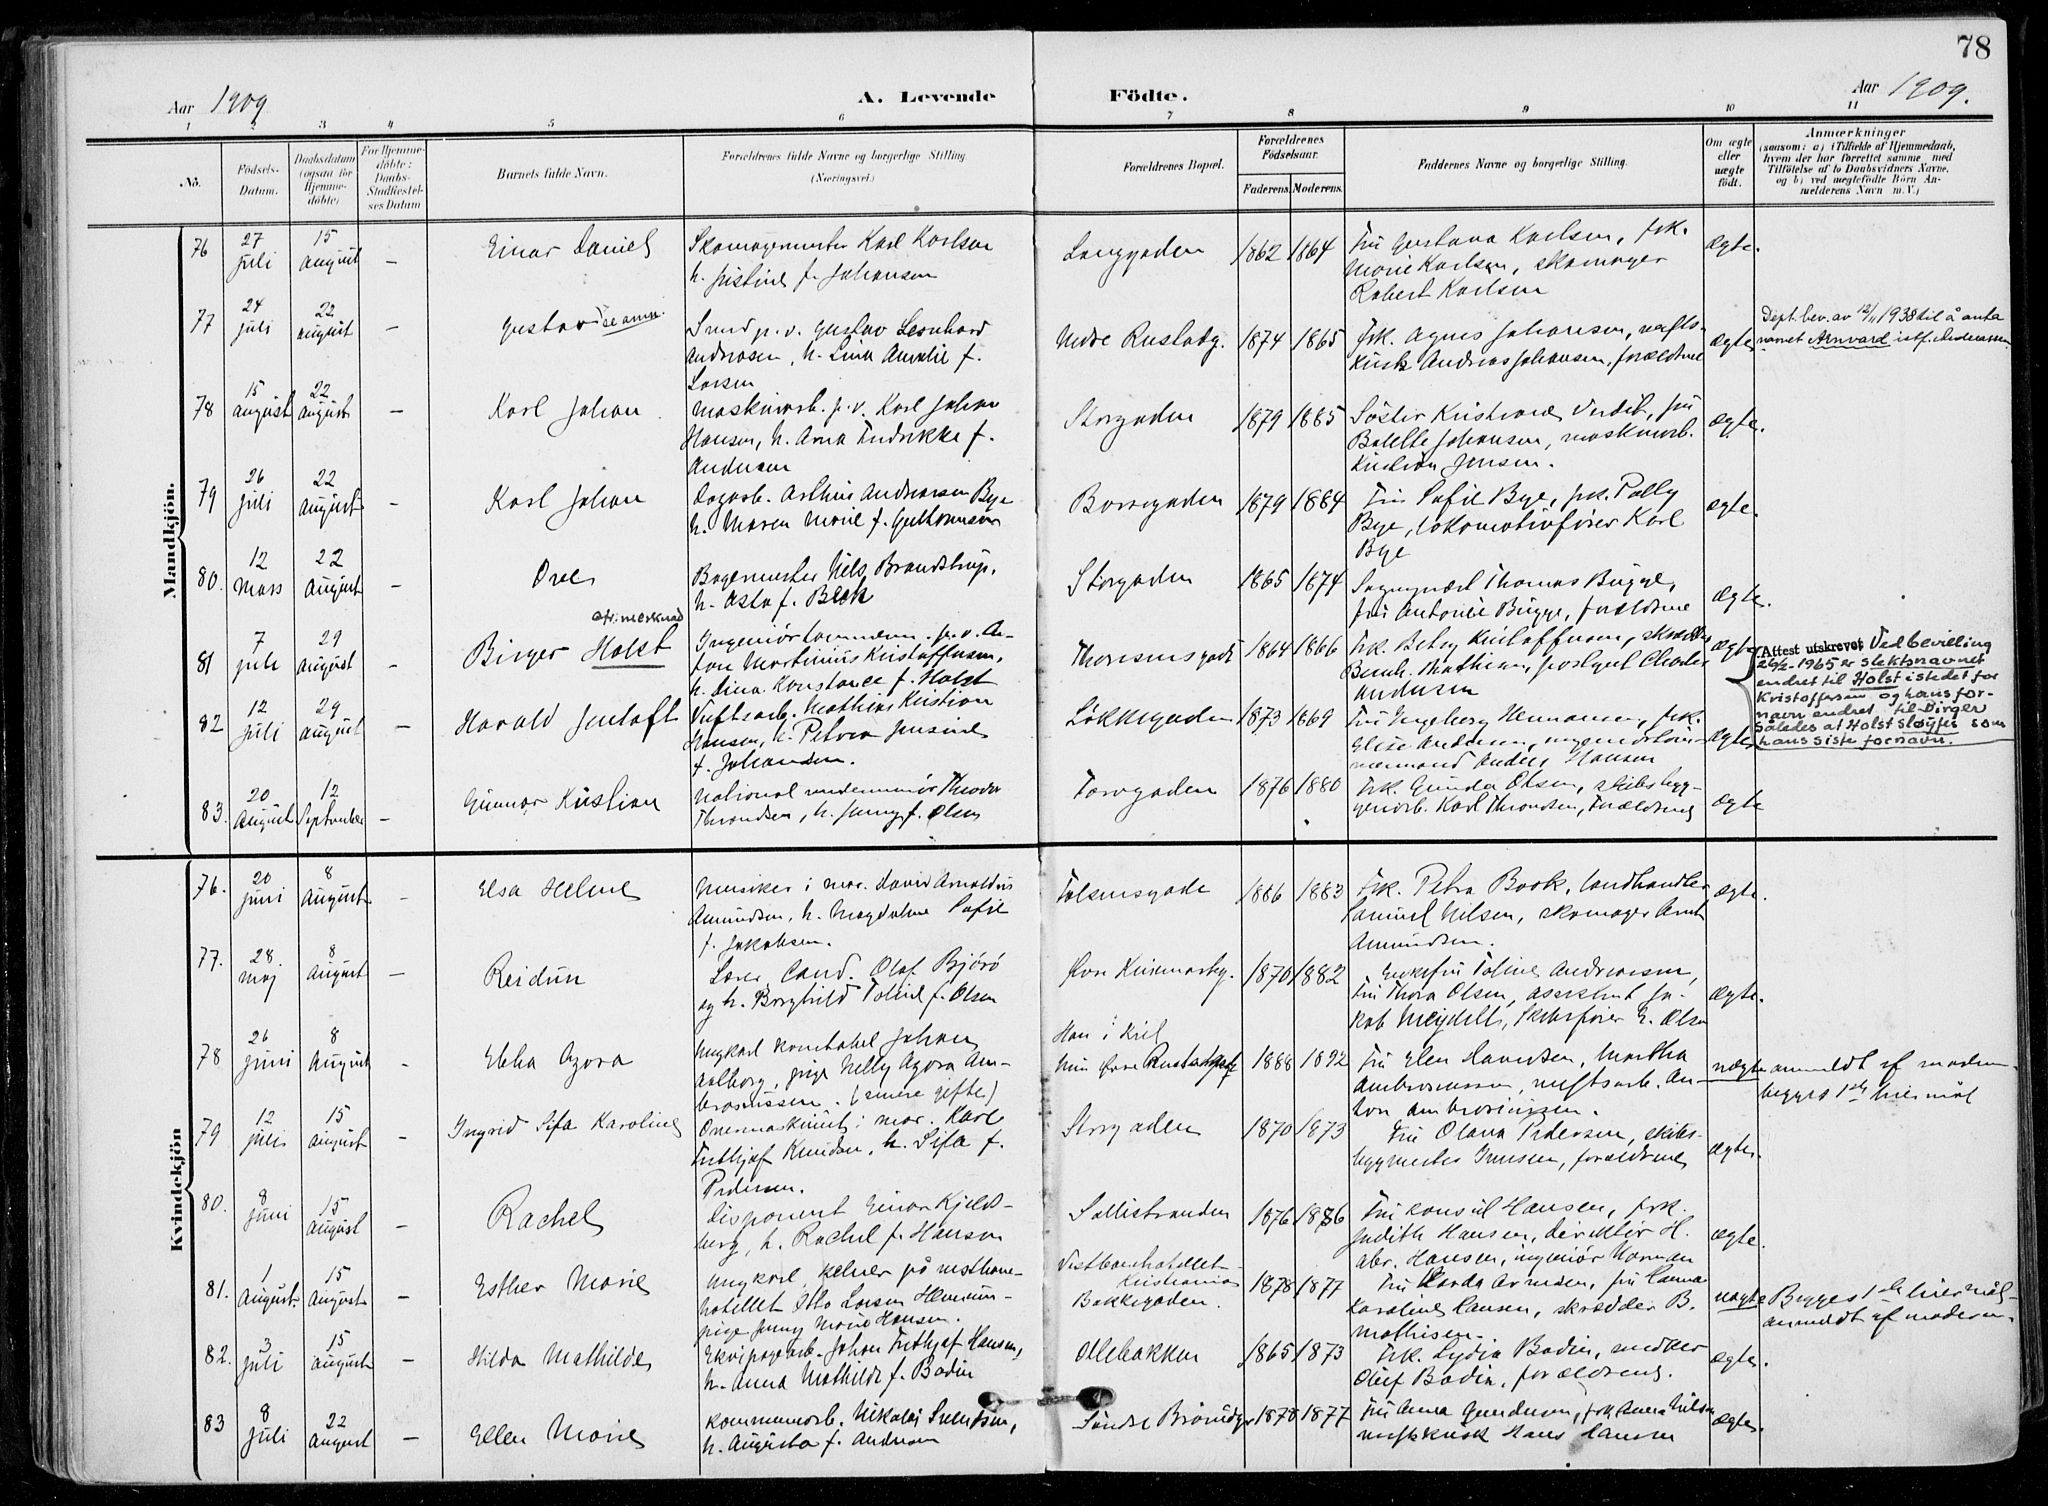 78
Aar 1909
A. Levende Födte.
Aar 1909.
1 2 3 4 5 6 7 8 9 10 11
No.
Födsels-Datum.
Daabsdatum (ogsaa for Hjemme-döbte)
For Hjemme-döbte: Daabs-Stadfæstel-ses Datum
Barnets fulde Navn.
Forældrenes fulde Navne og borgerlige Stilling.
(Næringsvei.)
Forældrenes Bopæl.
Forældrenes Födselsaar.
Faderens. Moderens.
Faddernes Navne og borgerlige Stilling.
Om ægte eller uægte födt.
Anmærkninger
(saasom: a) i Tilfælde af Hjemmedaab,
hvem der har forrettet samme med
Tilföielse af to Daabsvidners Navne,
og b) ved uægtefödte Börn An-
melderens Navn m. V.)
Mandkjön.
76 27 juli 15 august – Einar Daniel
Skomagermester Karl Karlsen
h. Justine f. Johansen
Langgaden 1862 1864
Fru Gustava Karlsen, frk.
Marie Karlsen, skomager
Robert Karlsen
ægte.
77 24 juli 22 august – Gustav se anm.
Smed p.v. Gustav Leonhard
Andreasen, h. Lina Amalie f.
Larsen
Nedre Rustadg. 1874 1865
Frk. Agnes Johansen, verfts-
kusk Andreas Johansen, forældrene
ægte
Dept. bev. av 12/11 1938 til å anta
navnet Arnvard istf. Andreassen
78 15 august 22 august – Karl Johan
Maskinarb. p.v. Karl Johan
Hansen, h. Anna Fredrikke f.
Andersen
Storgaden 1879 1885
Bolette Johansen, maskinarb.
Kristian Jensen.
ægte.
79 26 juli 22 august – Karl Johan
Dagarb. Arthur Andreasen Bye
h. Maren Marie f. Guttormsen
Borregaden 1879 1884
Fru Sofie Bye, frk. Polly
Bye, lokomotivfører Karl
Bye
ægte.
80. 12 Mars 22 August – Ove
Bagermester Niels Brandstrup,
h. Asta f. Beck
Storgaden 1865 1874
Sagmynært Thomas Bugge,
fru Antonie Bugge, forældrene
ægte.
cfr. merknad
81 7 juli 29 august – Birger Holst
Ingeniørtømmerm. p.v. An-
ton Martinius Kristoffersen,
h. Dina Konstance f. Holst
Thorensgade 1864 1866
Frk. Betsy Kristoffersen, skrædder
Bernh. Mathisen, postbud Charles
Andersen
ægte
Attest utskrevet Ved bevilling
26/2-1965 er slektsnavnet
endret til Holst istedet for
Kristoffersen og hans for-
navn endret til Birger
således at Holst sløyfes som
hans siste fornavn.
82 12 juli 29 august – Harald Gustaft
Verftsarb. Mathias Kristian
Hansen, h. Petra Jensine
f. Johansen.
Løkkegaden 1873 1869
Fru Ingeborg Hermansen, frk.
Elise Andersen,
Anders Hansen
ægte
83. 20 August 12 September – Gunnar Kristian
National underminør Theodor
Throndsen, h. Jenny f. Olsen
Torvgaden 1876 1880
Frk. Gunda Olsen, skibsbyg-
geriarb. Karl Throndsen, forældrene
ægte
Kvindekjön
76. 20 juni 8 August – Elsa Helene
Musiker i mar. David Arnoldus
Amundsen, h. Magdalene Sofie
f. Jakobsen.
Falsensgade 1886 1883
Frk. Petra Book, landhandler
Samuel Nilsen, skomager Arnt
Amundsen.
ægte.
77. 28. maj 8 August – Reidun
Lærer, Cand. Olaf Bjørø
og h. Borghild Toline f. Olsen
Øvre Keisemarkg. 1870 1882
Enkefru Toline Andreasen,
Fru Thora Olsen, assistent Ja-
kob Meydell, Skibsfører E. Olsen
ægte.
78 26 juni 8 August – Ebba Agora
Ungkarl konstabel Johan
Aalborg, pige Nelly Agora Am-
brosiussen. (senere gifte)
Han i Kiel
hun Øvre Rustadgade 1888 1892
Fru Elen Lauritsen, Martha
Ambrosiussen, verftsarb. An-
ton Ambrosiussen.
uægte
anmeldt af moderen
begges 1ste leiermål
79 12 juli 15 august – Ingrid Sifa Karoline
Overmaskinist i mar. Karl
Frithjof Knudsen, h. Sifa f.
Pedersen.
Storgaden 1870 1873
Fru Olava Pedersen, skibs-
bygmester Iversen, forældrene
ægte.
80. 8 Juni 15 august – Rachel
Disponent Einar Kjeld-
berg, h. Rachel f. Hansen
Sollistranden 1876 1886
Fru konsul Hansen, frk.
Judith Hansen, direktør H.
abr. Hansen, ingeniør Norman
ægte.
81. 1 August. 15 August – Esther Marie
Ungkarl, kelner på vestbane-
hotellet Otto Larsen
pige Jenny Marie Hansen.
Vestbanehotellet
Kristiania
Bakkegaden. 1878 1877
Fru Harda Arnesen, fru Hanna
Karoline Hansen, skrædder B.
Mathisen.
uægte
Begges 1ste leiermål-
anmeldt af moderen.
82. 3 juli 15 august – Hilda Mathilde
Ekvipagearb. Johan Frithjof Hansen,
h. Anna Mathilde f. Bodin
Ollebakken 1865 1873
Frk. Lydia Bodin, snedker
Oluf Bodin, forældrene.
ægte.
83 8 juli 22 august – Ellen Marie
Kommunearb. Nikolai Svendsen,
h. Augusta f. Andersen
Søndre Brårudg. 1878 1877
Fru Anna Gundersen, frk Anna Nilsen
verftskusk Hans Hansen
ægte.